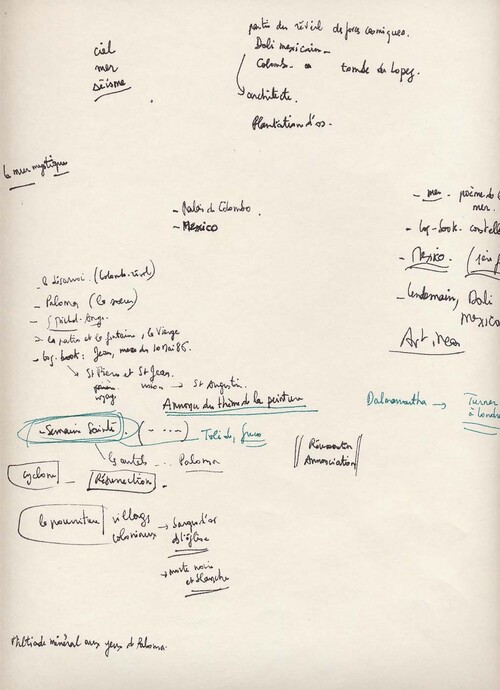 ciel
mer
séisme
partie du réveil de forces cosmiques.
Dali mexicain
Colomb
tombe de Lopez.
architecte.
Plantation d'os
la mer mystique
- Palais de Colombo.
- Mexico
- mer - poème de
mer.
- log-book. constell
- Mexico. (1ère
- lendemain, Dali
Mexico
Art,
- le désarroi. (Colomb-
- Paloma (le
- St Michel-Ange
la fontaine, la Vierge
- log-book: Jean, 10 Mai 86.
St Pierre et St Jean.
vision → St Augustin.
Annonce du thème de la peinture
Dalmanutha → Turner
à Londr
- Semaine Sainte (- ....) Tolède, Greco
Rencontre
Annonciation
les autels ... Paloma
cyclone - Résurrection.
la pourriture villages
coloniaux → d'or
de l'église
→ morte noire
et blanche
minéral aux yeux de Paloma.